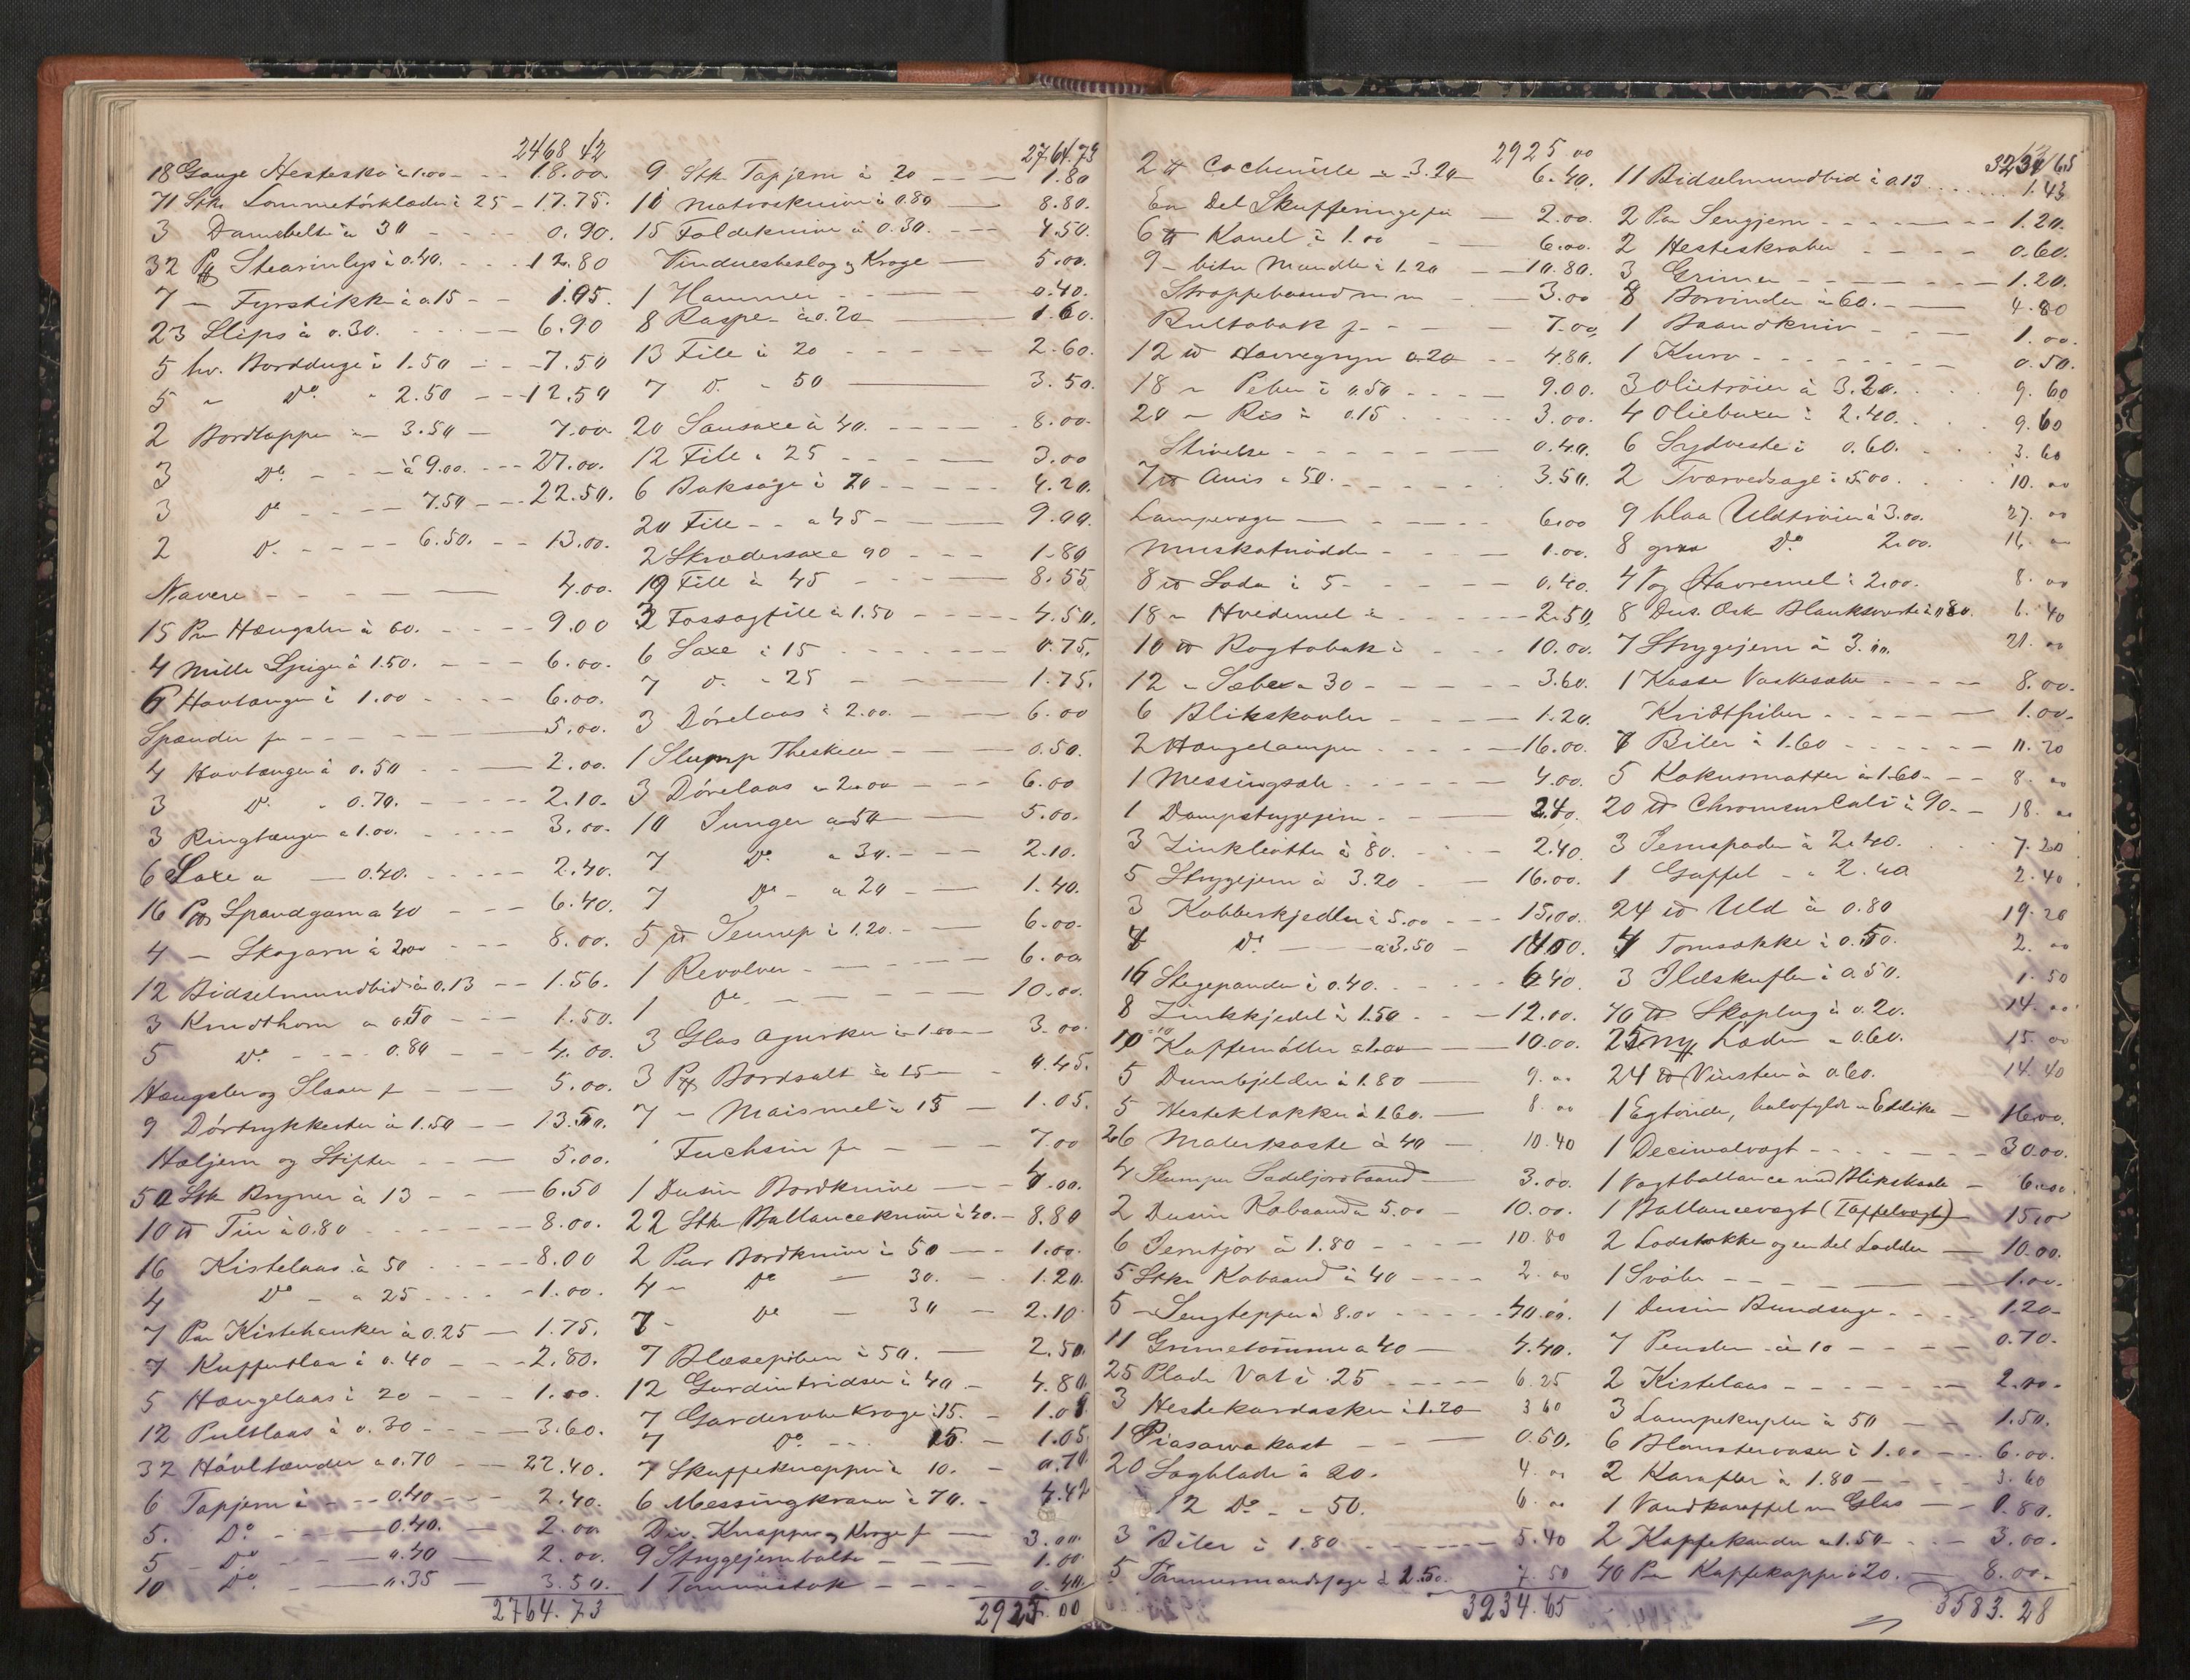 2468 42
18 Gange Hestesko à 1.00 - - 18.00.
71 Stk. Lommetörklæder à 25 - 17.75.
3 Damebelte à 30 - - - 0.90.
32 Pk Stearinlys à 0.40. - - - 12.80
7 — Fyrstikker à 0.15 - - 1.05.
23 Slips à 0.30. - - - - 6.90
5 hv. Bordduge à 1.50 - - - 7.50
5 " Do. " 2.50 - - - 12.50
2 Bordtepper — 3.50 — 7.00
3 Do. - - - à 9.00. - - - 27.00.
3 Do - - - - 7.50 - - - 22.50.
2 D. - - - - 6.50. - - 13.00.
Navere - - - - — 4.00.
15 Par Hængsler à 60. - - - - 9.00
4 Mille Spiger à 1.50. - - - 6.00.
6 Hovtænger à 1.00 - - - - 6.00.
Spænder for - - - - — 5.00.
4 Hovtænger à 0.50 - - — 2.00.
3 D. " 0.70. - - - - - 2.10.
3 Ringtænger à 1.00. - - - - 3.00.
6 Saxe a — 0.40. - - - - - 2.40.
16 Pk Spandgarn a 40 - - - 6.40.
4 — Skogarn à 2.00 - - - 8.00.
12 Bidselmundbid à 0.13 - - 1.56.
3 Krudthorn a 0.50 - - - 1.50.
5 Do. - - - - 0.80 - - - 4.00.
Hængsler og Slaaer for — 5.00.
9 Dörtrykkerter à 1.50 - - 13.50.
Hæljern og Stifter - - - — 5.00.
50 Stk Bryner à 13 - - — 6.50
10 ℔ Tin à 0.80 - - - - - - 8.00.
16 Kistelaas à 50 - - - - - 8.00
4 Do — a 25 - - - - 1.00.
7 Par Kistehanker à 0.25 — 1.75.
7 Kuffertlaa à 0.40 - - - 2.80.
5 Hængelaas à 20 - - - - 1.00.
12 Pultlaas à 0.30 - - - - 3.60.
32 Hövltænder a 0.70 - - - 22.40.
6 Tapjern à - - - 0.40 - - - 2.40.
5. Do - - - - 0.40. — 2.00
5 - Do - - - - 0.40 — 2.00.
10 Do. - — 0.35 — 3.50.
2764.73
2764.73
9 Stk. Tapjern à 20 - - — 1.80
11 Matrosknive à 0.80 — 8.80.
15 Foldeknive à 0.30. - - - 4.50.
Vinduesbeslag og Kroge — 5.00.
1 Hammer - - - — 0.40.
8 Raspe — à 0.20 — 1.60.
13 File à 20 - - - - - 2.60.
7 D. " 50 — 3.50.
20 Sausaxe à 40. - - - - 8.00.
12 File " 25 - - - - — 3.00
6 Baksage à 70 - - - — 4.20.
20 File - - a 45 - — 9.00.
2 Skrædersaxe 90 - - - 1.80
19 File à 45 - - - — 8.55
3 Fossagfile à 1.50 - - - - - 4.50.
6 Saxe à 15 - - - - - - - 0.75.
7 D. " 25 - — 1.75.
3 Dörelaas à 2.00. - — 6.00
1 Slump Theskeer - - — 0.50.
3 Dörelaas a 2.00 - - - 6.00
10 Tunger a 50 — 5.00.
7 Do. a 30. - - — 2.10.
7 Do - a 20 - — 1.40.
5 ℔ Sennep à 1.20. - — 6.00.
1 Revolver - - - - — 6.00
1 Do - - - - — 10.00.
3 Glas Agurker à 1.00 — 3.00.
3 Pk Bordsalt à 15 — 0.45.
7 — Maismel à 15 — 1.05.
Fuchsin for — - - 7.00
1 Dusin Bordknive — 4.00.
22 Stk Ballanceknive à 40. — 8.80
2 Par Bordknive à 50 — - 1.00.
4 — Do — 30. - - 1.20.
7 - Do — 30 — 2.10
7 Blæsepiber à 50. — 2.50
12 Gardintridser à 40 — 4.80
7 Garderobe Kroge à 15. - 1.05
7 Do. - - - 15. — 1.05.
7 Skuffeknapper à 10. — 0.70
6 Messingkraner à 70. - 4.42
Div. Knapper og Kroge for — 3.00.
9 Strygejernbolte - - - — 1.00
1 Tommestok - - - - 0.40.
2925.00
2925 00
2 ℔ Cochenille a 3.20 6.40.
En Del Skufferinge for — 2.00.
6 ℔ Kanel à 1.00 - — 6.00.
9 — bitre Mandler à 1.20 - — 10.80.
Stroppebaand m m - — 3.00
Rultobak for - - - — 7.00,
12 ℔ Havregryn 0.20 - - 4.80.
18 " Peber à 0.50 - - - - 9.00.
20 — Ris à 0.15 - - - - 3.00.
Stivelse - - - - - — 0.40.
7 ℔ Anis à 50. - - - - - 3.50.
Lampevæger — - - - - — 6.00
Muskatnödder - - - — 1.00.
8 ℔ Soda à 5 - - - - - 0.40.
18 " Hvedemel à - - - - - 2.50.
10 ℔ Rogtobak à - - - 10.00.
12 " Sæbe a 30 - - - - - 3.60.
6 Blikskovler - - - - — 1.20.
2 Hængelamper - - - - — 16.00.
1 Messingsold - - - - — 4.00.
1 Dampstrygejern - - — 2.40.
3 Zinkbötter à 80. - - - 2.40.
5 Strygejern à 3.20 - — 16.00.
3 Kobberkjedler à 5.00 - - - 15.00.
4 Do — à 3.50 - 14.00.
16 Stegepander à 0.40. - - - - 6.40.
8 Zinkkjedel à 1.50 - - — 12.00.
10 Kaffemöller à 1.00 — 10.00.
5 Dumbjelder à 1.80 — 9.00
5 Hesteklokker à 1.60. — 8.00
26 Malerkoste à 40 — 10.40
4 Slumper Sadeljordbaand — 3.00.
2 Dusin Kobaand a 5.00 — 10.00.
6 Jerntjor à 1.80 - - - - 10.80
5 Stk. Kobaand à 40 - - - - 2.00
5 - Sengtepper à 8.00 - - - - - 40.00.
11 Grimetömme a 40 — 4.40.
25 Plader Vat à .25 - - - - - 6.25
3 Hestekardasker à 1.20 3 60
1 Piasavakost - - - — 0.50.
20 Sagblade à 20. 4.00
12 Do - " 50. 6.00
3 Biler à 1.80 - - - - - 5.40
5 Tömmermandssage à 1.50. - - 7.50
3234.65
3234 65
11 Bidselmundbid à 0.13 . . . . . 1.43
2 Par Sengjern - - - - - — 1.20.
2 Hesteskraber - - - - - 0.60.
3 Grimer - - - - - - — 1.20.
8 Borvinder à 60. - - — 4.80
1 Baandkniv - - - - — 1.00.
1 Kurv - - - - - - - - 0.50.
3 Olietröier à 3.20. . . . 9.60
4 Oliebuxer à 2.40. . . . 9.60
6 Sydveste à 0.60. . . . 3.60
2 Tværvedsage à 5.00. . . . 10.00
9 blaa Uldtröier à 3.00. 27.00
8 graa Do. 2.00. 16.00
4 Vog Havremel à 2.00. 8.00
8 Dus. Æsk. Blanksværte à 0.80. 6.40
7 Strygejern à 3.00. 21.00
1 Kasse Vaskesæbe - - - - - 8.00.
Kridtpiber - - - - — 1.00.
7 Biler à 1.60 - - - - - — 11.20
5 Kokusmatter à 1.60 - - 8.00
20 ℔ Chromsur Cali à 90 - - 18.00
3 Jernspader à 2.40. . . . 7.20
1 Gaffel - " 2.40 2.40
24 ℔ Uld à 0.80 19.20
4 Tomsække à 0.50. 2.00
3 Ildskufler à 0.50. 1.50
70 ℔ Skoplug à 0.20. 14.00
25 Læder a 0.60. 15.00
24 ℔ Vinsten à 0.60. 14.40
1 Egtönde, halvfyldt m Eddike — 16.00.
1 Decimalvægt - - - - - - — 30.00.
1 Vægtballance med Blikskaale — 6.00.
1 Ballancevægt (Taffelvægt) — 15.00
2 Lodstokke og en Del Lodder — 10.00.
1 Svöbe - - - - — 1.00.
1 Dusin Bundsage - - - - 1.20
7 Pensler à 10 - - - - 0.70.
2 Kistelaas - - - - - - — 2.00.
3 Lampekupler à 50 — - 1.50.
6 Blomstervaser à 1.00 - - - 6.00.
2 Karafler à 1.80 - - - - 3.60
1 Vandkaraffel m Glas — - 0.80.
2 Kaffekander a 1.50 - - - 3.00.
40 Par Kaffekopper à 20. — 8.00.
3583.28